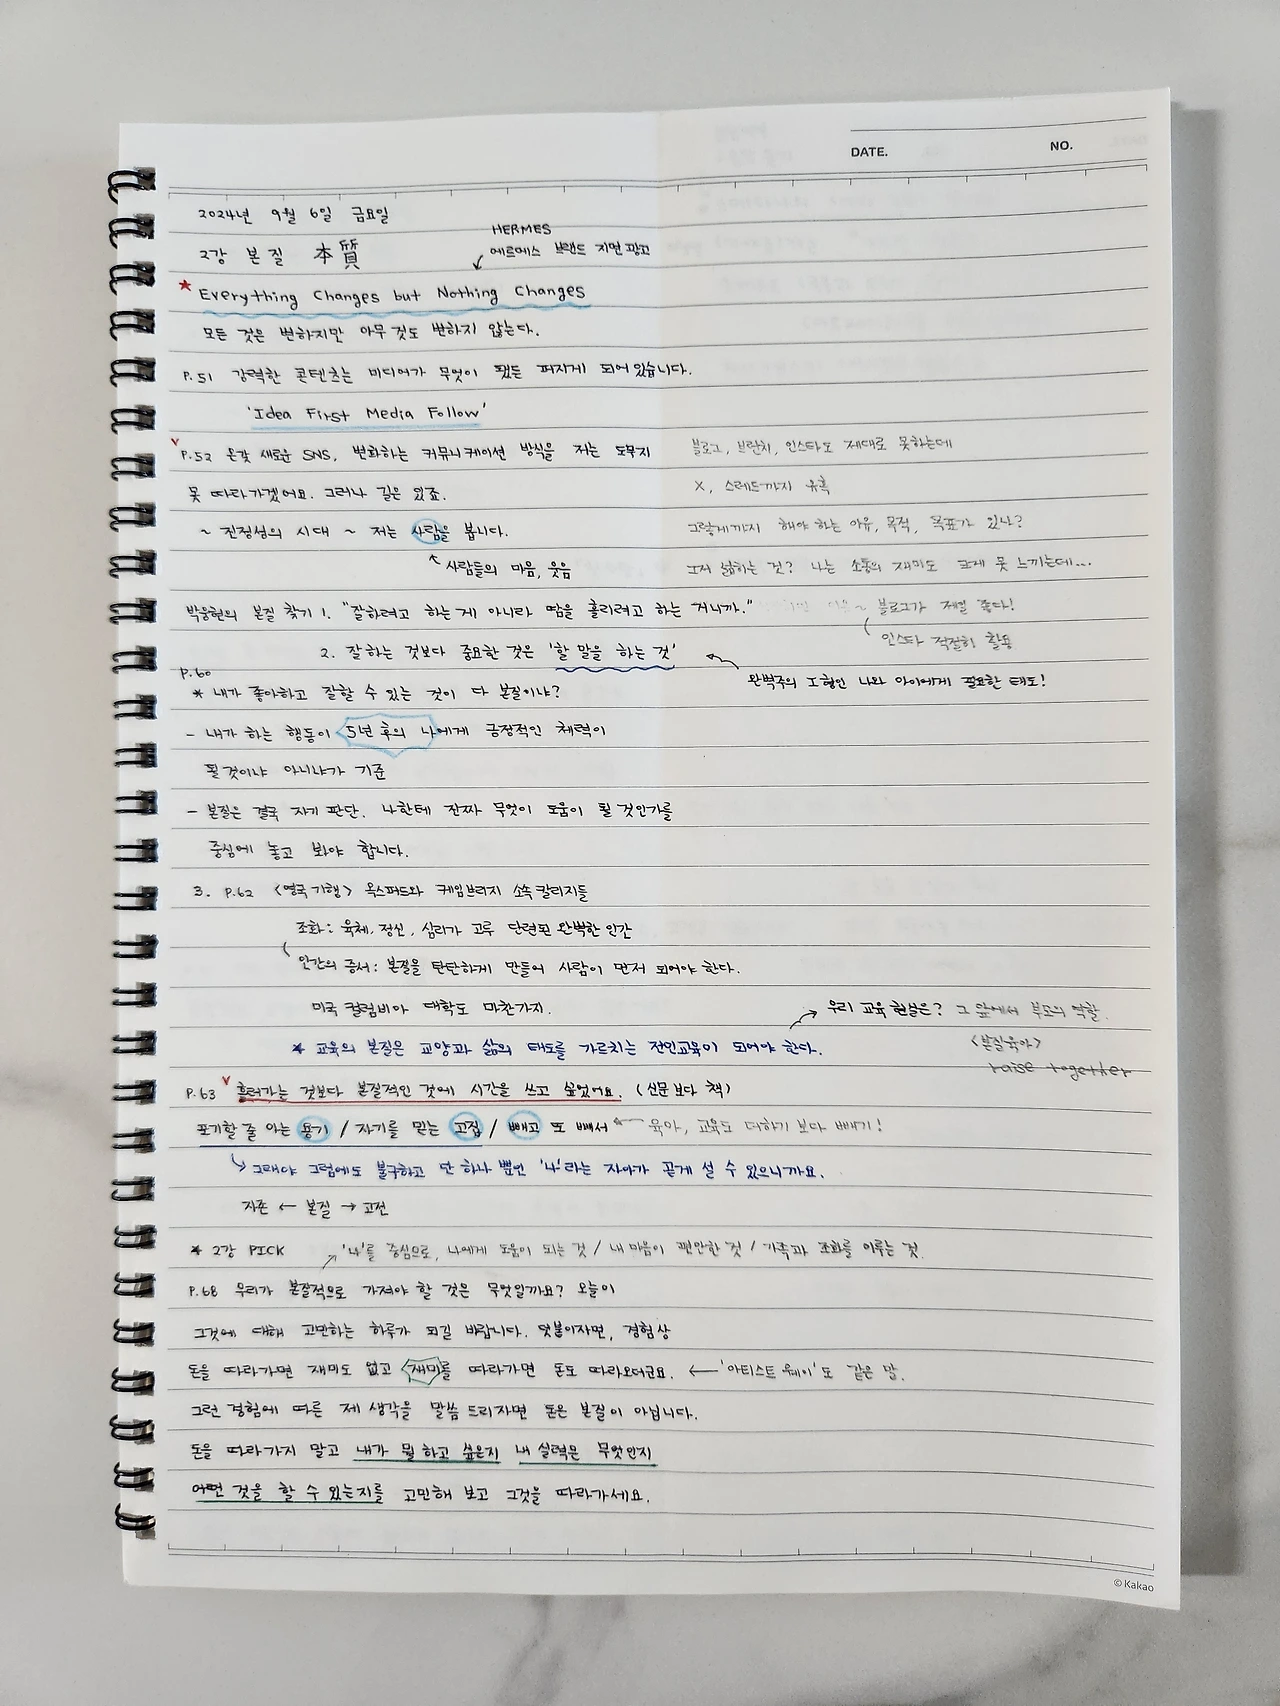 DATE. NO.
2024년 9월 6일 금요일
HERMES
2강 본질 本質
에르메스 브랜드 지면 광고
Everything Changes but Nothing Changes
모든 것은 변하지만 아무것도 변하지 않는다.
P.51 강력한 콘텐츠는 미디어가 무엇이 됐든 퍼지게 되어 있습니다.
'Idea First Media Follow'
P.52 온갖 새로운 SNS, 변화하는 커뮤니케이션 방식을 저는 도무지
블로그, 브런치, 인스타도 제대로 못하는데
못 따라가겠어요. 그러나 길은 있죠.
X, 스레드까지 유혹
~ 진정성의 시대 ~ 저는 사람을 봅니다.
그렇게까지 해야 하는 이유, 목적, 목표가 있나?
사람들의 마음, 웃음
그저 넓히는 것? 나는 소통의 재미도 크게 못 느끼는데...
박웅현의 본질 찾기 1. "잘하려고 하는 게 아니라 땀을 흘리려고 하는 거니까."
~ 블로그가 제일 좋다!
인스타 적절히 활용
2. 잘하는 것보다 중요한 것은 '할 말을 하는 것'
완벽주의 I형인 나와 아이에게 필요한 태도!
P.60
* 내가 좋아하고 잘할 수 있는 것이 다 본질이냐?
- 내가 하는 행동이 5년 후의 나에게 긍정적인 체력이
될 것이냐 아니냐가 기준
- 본질은 결국 자기 판단. 나한테 진짜 무엇이 도움이 될 것인가를
중심에 놓고 봐야 합니다.
3. P.62 <영국 기행> 옥스퍼드와 케임브리지 소속 칼리지들
조화: 육체, 정신, 심리가 고루 단련된 완벽한 인간
인간의 증서: 본질을 탄탄하게 만들어 사람이 먼저 되어야 한다.
미국 컬럼비아 대학도 마찬가지.
우리 교육 현실은? 그 앞에서 부모의 역할.
* 교육의 본질은 교양과 삶의 태도를 가르치는 전인교육이 되어야 한다.
<본질육아>
raise together
P.63 흘러가는 것보다 본질적인 것에 시간을 쓰고 싶었어요. (신문보다 책)
포기할 줄 아는 용기 / 자기를 믿는 고집 / 빼고 또 빼서
육아, 교육도 더하기 보다 빼기!
그래야 그럼에도 불구하고 단 하나 뿐인 '나'라는 자아가 곧게 설 수 있으니까요.
자존 ← 본질 → 고전
* 2강 PICK
'나'를 중심으로, 나에게 도움이 되는 것 / 내 마음이 편안한 것 / 가족과 조화를 이루는 것.
P.68 우리가 본질적으로 가져야 할 것은 무엇일까요? 오늘이
그것에 대해 고민하는 하루가 되길 바랍니다. 덧붙이자면, 경험상
돈을 따라가면 재미도 없고 재미를 따라가면 돈도 따라오더군요. ← '아티스트 웨이'도 같은 말.
그런 경험에 따른 제 생각을 말씀 드리자면 돈은 본질이 아닙니다.
돈을 따라가지 말고 내가 뭘 하고 싶은지 내 실력은 무엇인지
어떤 것을 할 수 있는지를 고민해 보고 그것을 따라가세요.
© Kakao